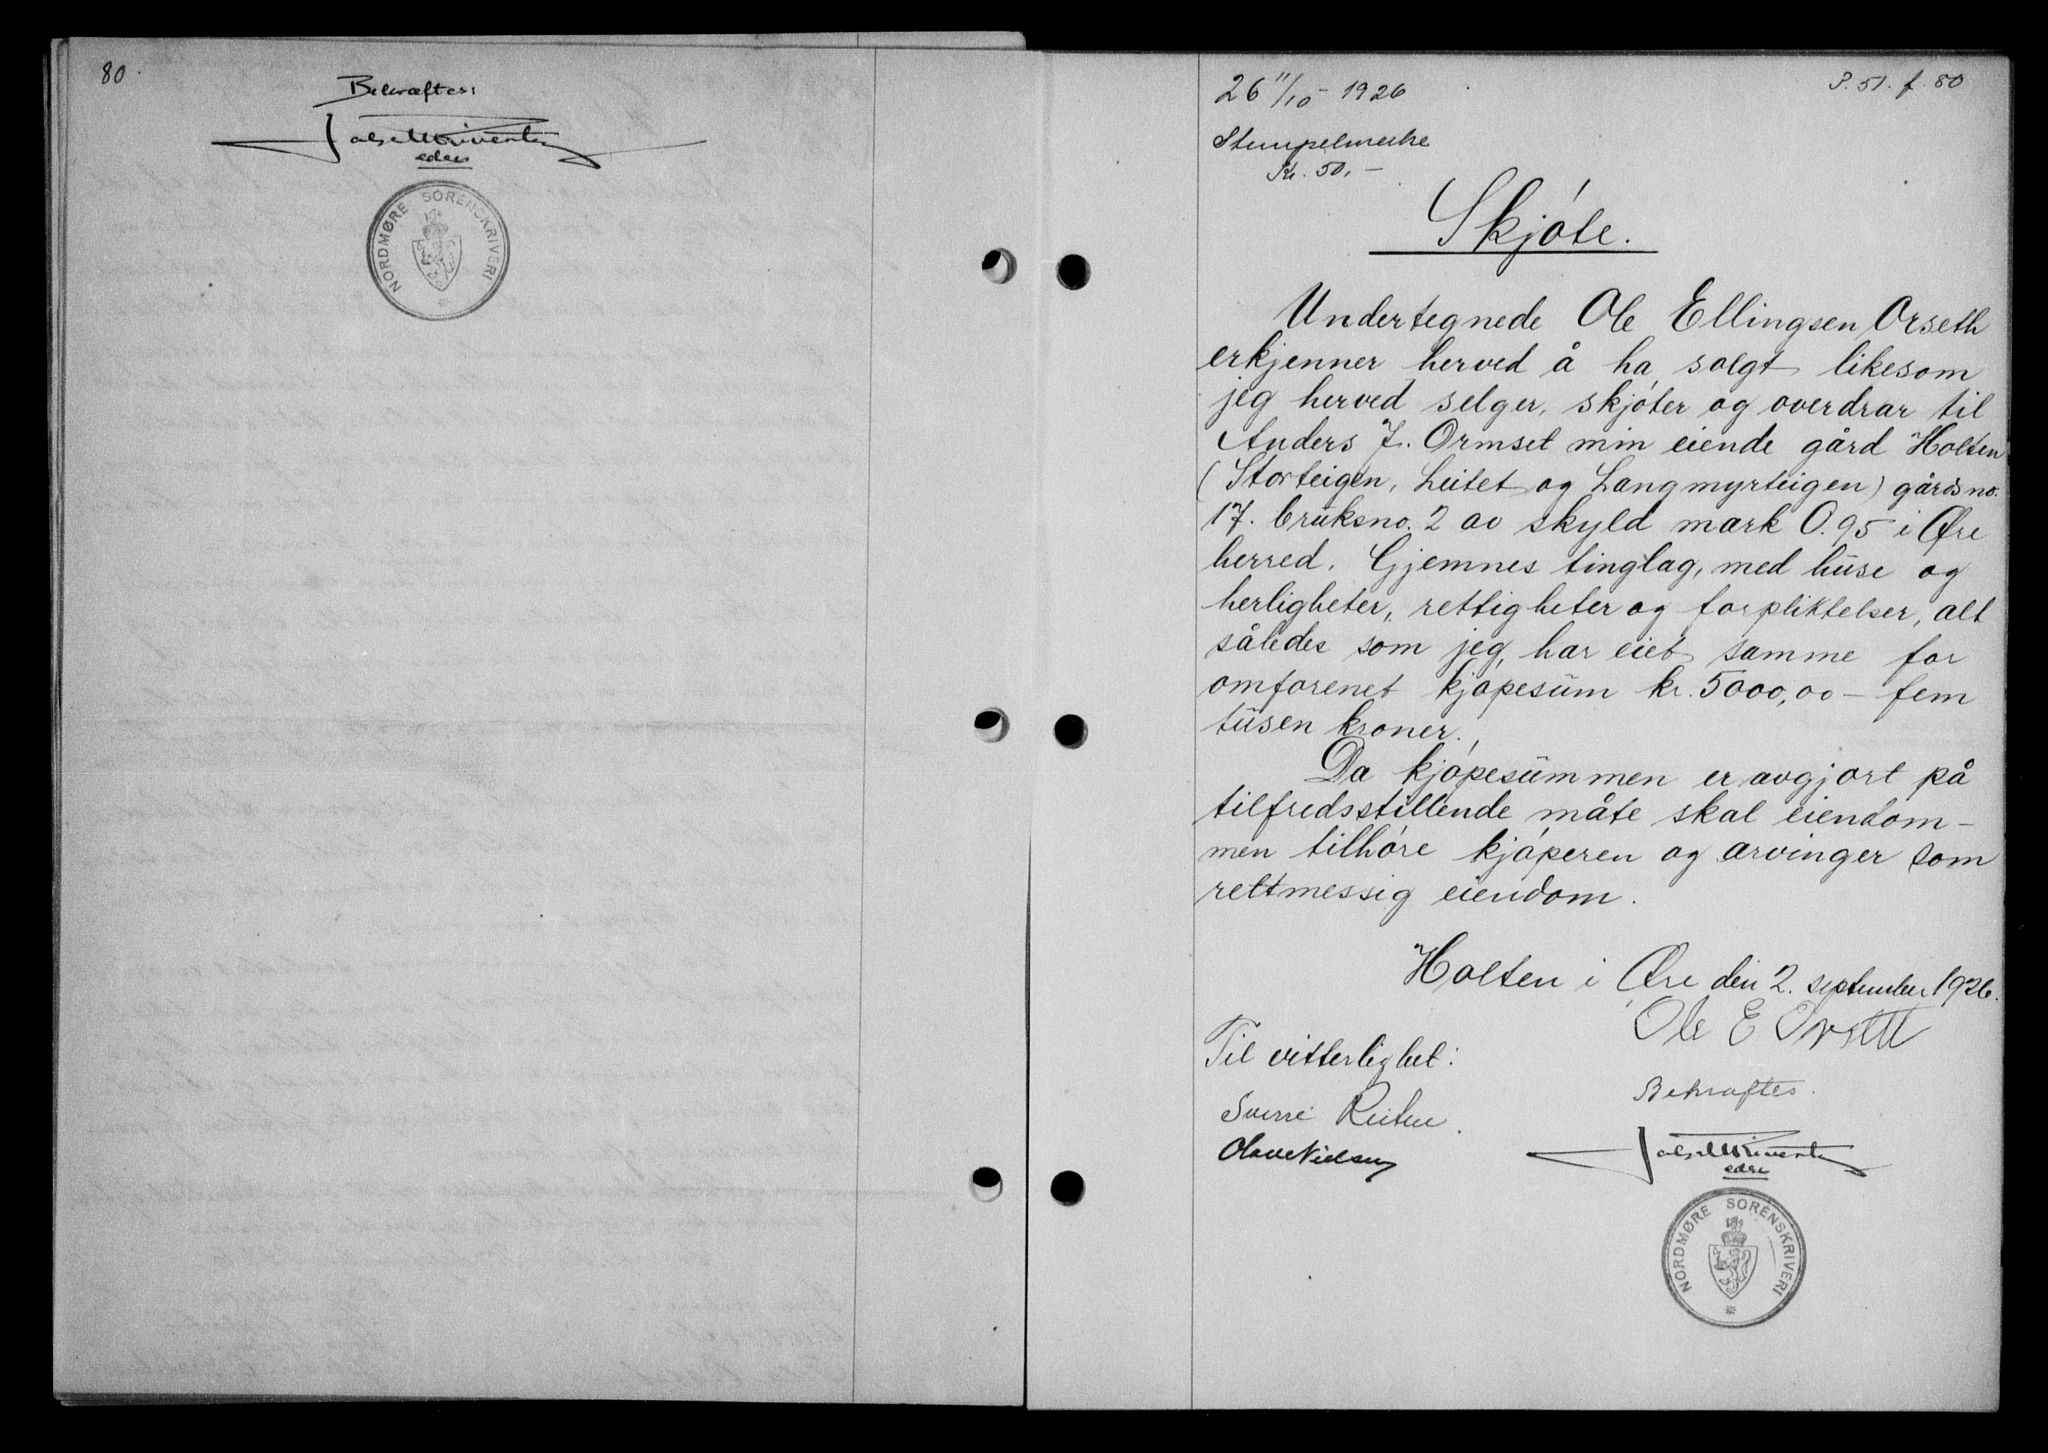 80.
Bekræftes:
edsv
NORDMØRE SORENSKRIVERI
26 11/10 - 1926
P. 51. f. 80
Stempelmerke
Kr. 50,-
Skjóte.
Undertegnede Ole Ellingsen Orseth
erkjenner herved å ha solgt likesom
jeg herved selger, skjóter og overdrar til
Anders J. Ormset min eiende gård Holten
(Storteigen, Leitet og Langmyrteigen) gårdsno.
17. bruksno. 2 av skyld mark 0.95 i Øre
herred, Gjemnes tinglag, med huse og
herligheter, rettigheter og forpliktelser, alt
således som jeg har eiet samme for
omforenet kjøpesum kr. 5000,00 - fem
tusen kroner.
Da kjópesummen er avgjort på
tilfredsstillende måte skal eiendom-
men tilhóre kjóperen og arvinger som
rettmessig eiendom.
Holten i Øre den 2. september 1926.
Ole E Orsett
Til vitterlighet:
Bekraftes.
Sverre Reiten.
Olave Nielsen
edsv
NORDMØRE SORENSKRIVERI